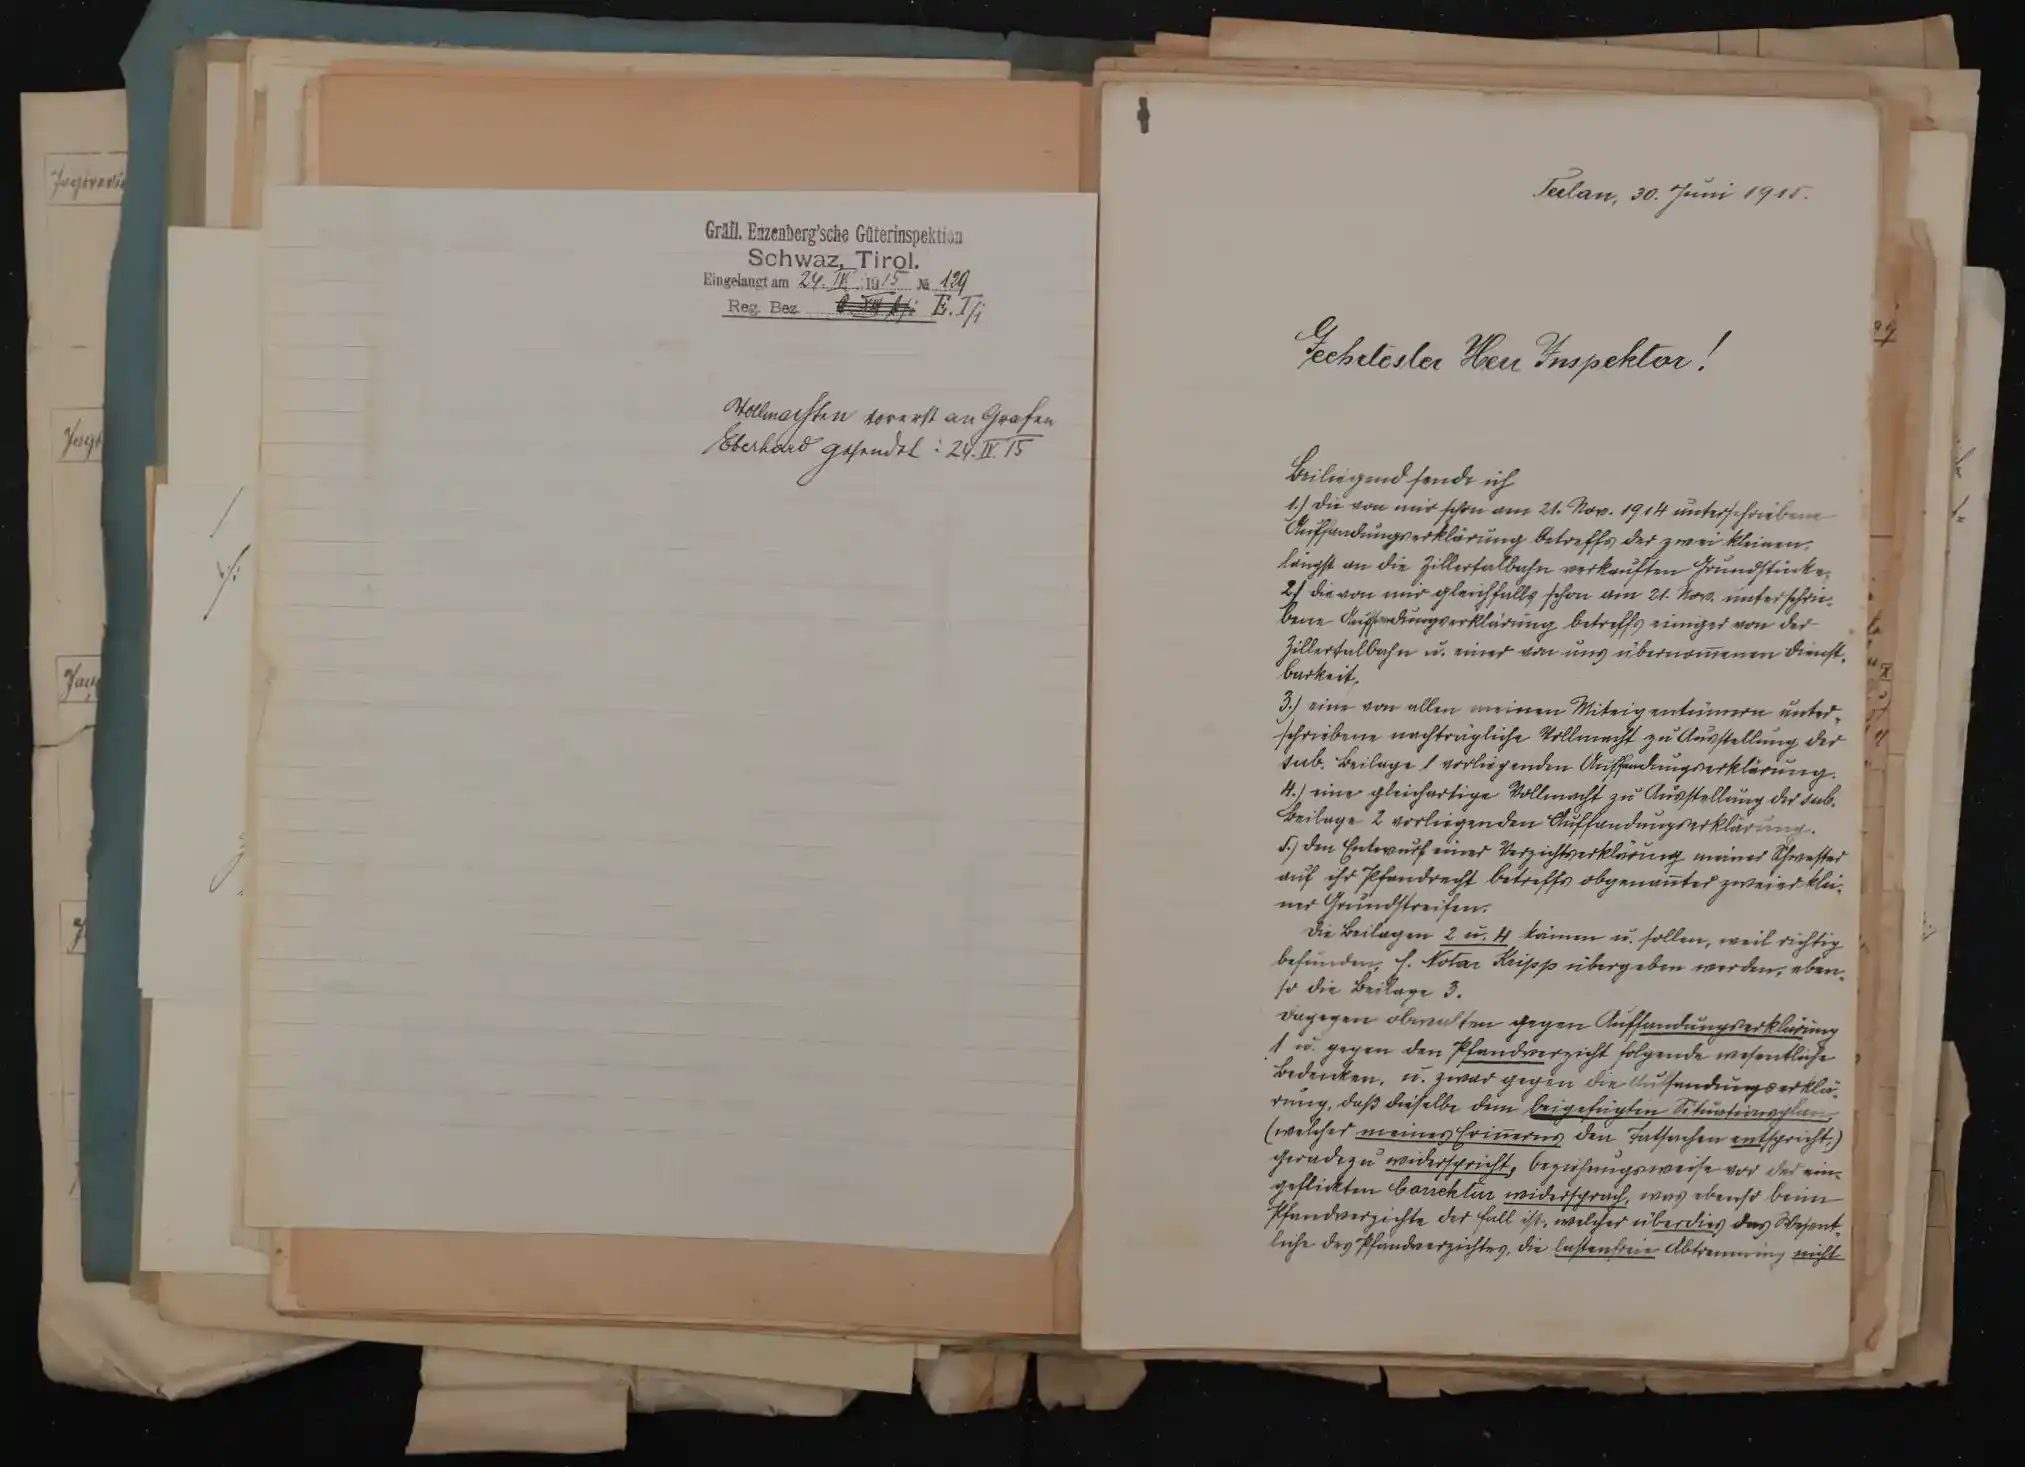 Gräfl. Enzenberg'sche Güterinspektion
Schwaz, Tirol.
Eingelangt am 24. IV. 1915 № 129
Reg. Bez. E. I/1
Vollmachten vorerst an Grafen
Eberhard gesendet: 24. IV. 15
Terlan, 30. Juni 1915.
Geehrtester Herr Inspektor!
Beiliegend sende ich
1.) die von mir schon am 21. Nov. 1914 unterschriebene
Aufsandungserklärung betreffs der zwei kleinen,
längst an die Zillertalbahn verkauften Grundstücke.
2.) die von mir gleichfalls schon am 21. Nov. unterschrie-
bene Aufsandungserklärung betreffs einiger von der
Zillertalbahn u. einer von uns übernom̄enen Dienst-
barkeit.
3.) eine von allen meinen Miteigentümern unter-
schriebene nachträgliche Vollmacht zu Ausstellung der
sub. Beilage 1 vorliegenden Aufsandungserklärung.
4.) eine gleichartige Vollmacht zu Ausstellung der sub.
Beilage 2 vorliegenden Aufsandungserklärung.
5.) den Entwurf einer Verzichtserklärung meiner Schwester
auf ihr Pfandrecht betreffs obgenan̄ter zweier klei-
ner Grundstreifen.
Die Beilagen 2 u. 4 kön̄en u. sollen, weil richtig
befunden, H. Notar Kripp übergeben werden, eben-
so die Beilage 3.
Dagegen obwalten gegen Aufsandungserklärung
1 u. gegen den Pfandverzicht folgende wesentliche
Bedenken, u. zwar gegen die Aufsandungserklä-
rung, daß dieselbe dem beigefügten Situationsplan
(welcher meines Erin̄erns den Tatsachen entspricht,)
geradezu widerspricht, beziehungsweise vor der ein-
geflickten Correktur widersprach, was ebenso beim
Pfandverzichte der Fall ist, welcher überdies das Wesent-
liche des Pfandverzichtes, die lastenfreie Abtrennung nicht